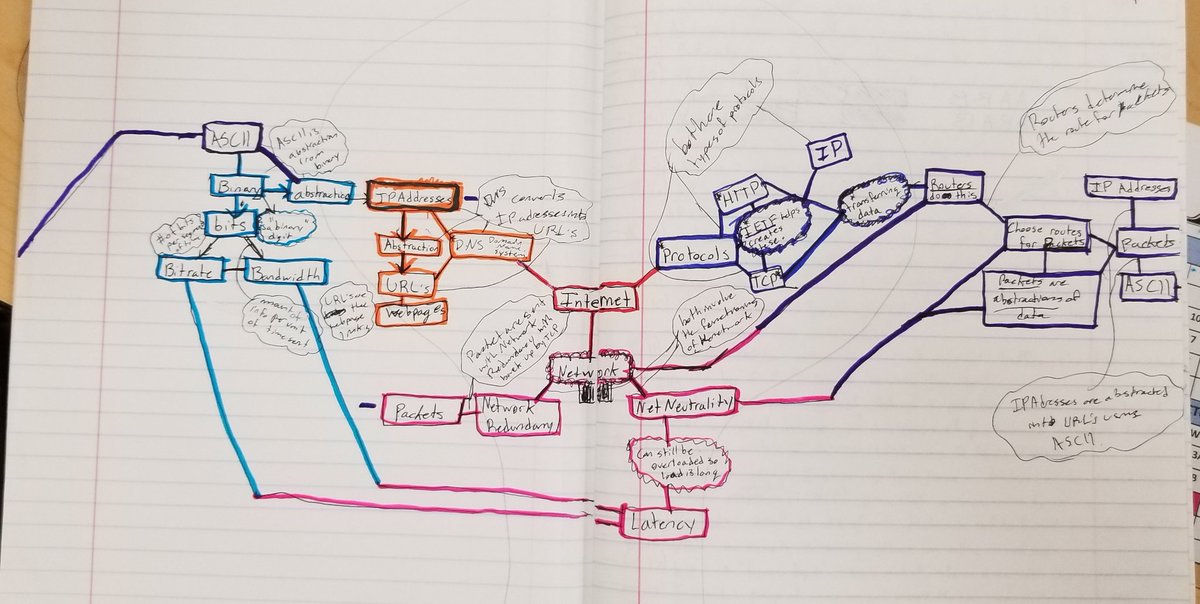 ASCII
ASCII is
abstraction
from
binary
Binary
abstraction
bits
"a binary
digit"
Bitrate
Bandwidth
amount of
info per unit
of
URL's are
the
webpage
links
IP Addresses
Abstraction
URL's
Webpages
DNS Domain
Name
System
DNS converts
IP adresses into
URL's
Internet
both are
types of protocols
IP
HTTP
IETF helps
creates
these!
TCP
Protocols
transferring
data
Routers
do this
Routers determine
the route for Packets
IP Addresses
Choose routes
for Packets
Packets
ASCII
Packets are
abstractions of
data
IP Adresses are abstracted
into URL's using
ASCII
both involve
the functioning
of the network
Packets are sent
with Network
Redundancy with
back up by TCP
Network
Packets
Network
Redundancy
Net Neutrality
Can still be
overloaded so
load is long
Latency